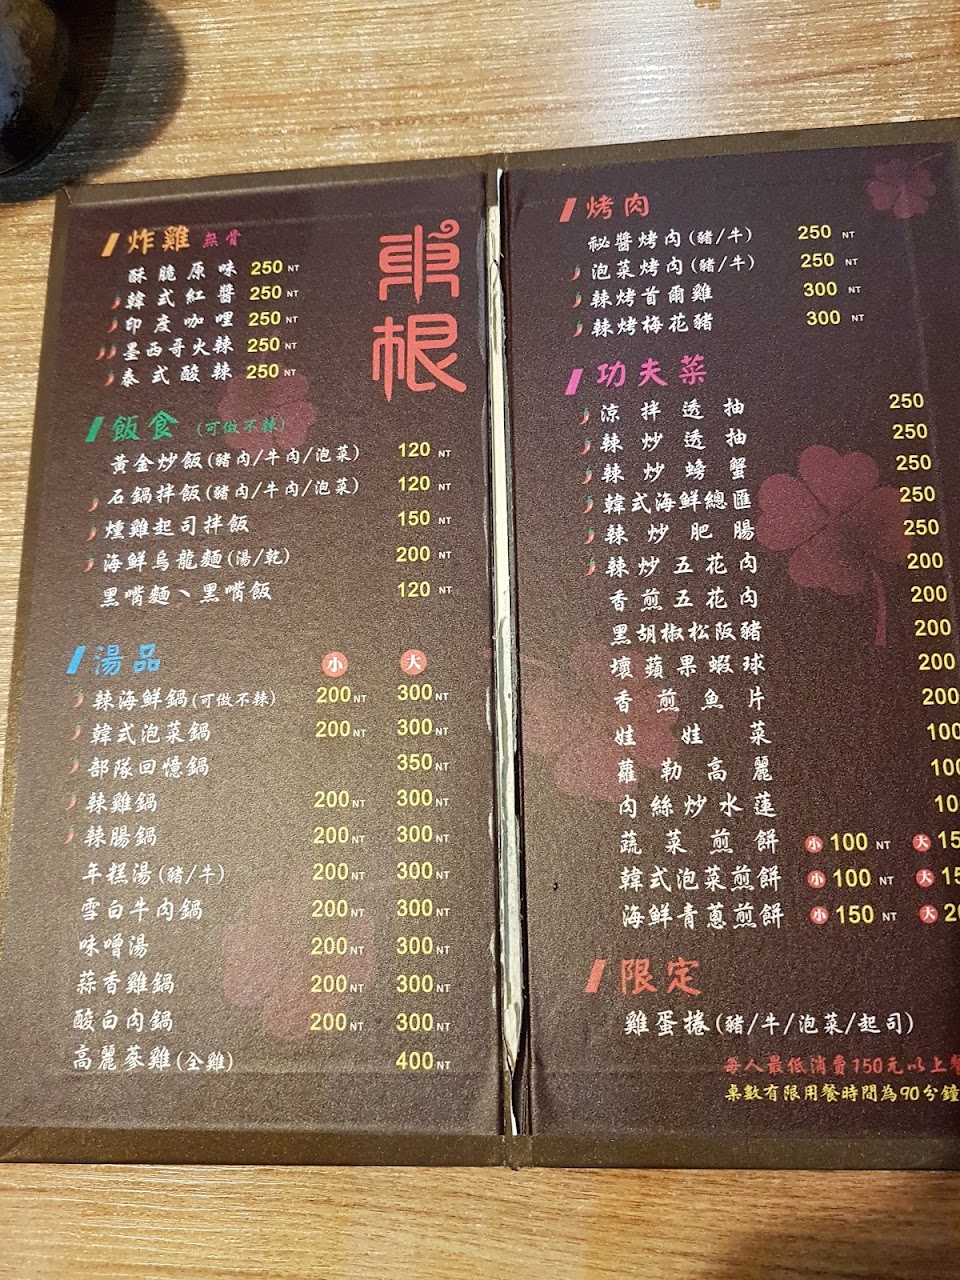 炸雞 無骨
酥脆原味 250 NT
韓式紅醬 250 NT
印度咖哩 250 NT
墨西哥火辣 250 NT
泰式酸辣 250 NT
飯食 (可做不辣)
黃金炒飯(豬肉/牛肉/泡菜) 120 NT
石鍋拌飯(豬肉/牛肉/泡菜) 120 NT
燻雞起司拌飯 150 NT
海鮮烏龍麵(湯/乾) 200 NT
黑嘴麵、黑嘴飯 120 NT
湯品 小 大
辣海鮮鍋(可做不辣) 200NT 300NT
韓式泡菜鍋 200NT 300NT
部隊回憶鍋 350NT
辣雞鍋 200NT 300NT
辣腸鍋 200NT 300NT
年糕湯(豬/牛) 200NT 300NT
雪白牛肉鍋 200NT 300NT
味噌湯 200NT 300NT
蒜香雞鍋 200NT 300NT
酸白肉鍋 200NT 300NT
高麗蔘雞(全雞) 400NT
根
烤肉
祕醬烤肉(豬/牛) 250 NT
泡菜烤肉(豬/牛) 250 NT
辣烤首爾雞 300 NT
辣烤梅花豬 300 NT
功夫菜
涼拌透抽 250
辣炒透抽 250
辣炒螃蟹 250
韓式海鮮總匯 250
辣炒肥腸 250
辣炒五花肉 200
香煎五花肉 200
黑胡椒松阪豬 200
壞蘋果蝦球 200
香煎魚片 200
娃娃菜 100
蘿勒高麗 100
肉絲炒水蓮 10
蔬菜煎餅 小 100 NT 大 15
韓式泡菜煎餅 小 100 NT 大 15
海鮮青蔥煎餅 小 150 NT 大 20
限定
雞蛋捲(豬/牛/泡菜/起司)
每人最低消費150元以上餐
桌數有限用餐時間為90分鐘